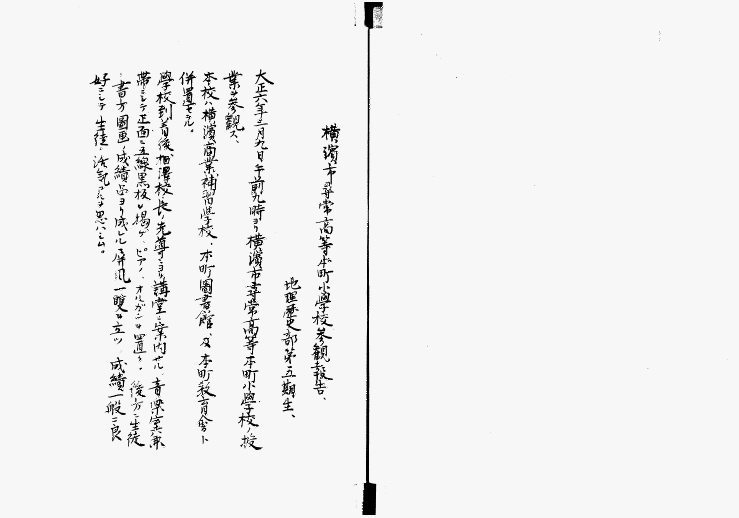 横濱市尋常高等本町小學校参觀報告、
地理歴史部第五期生、
大正六年三月九日午前九時ヨリ横濱市尋常高等本町小學校ノ授
業ヲ参觀ス、
本校ハ横濱商業補習學校、本町圖書館、及本町教育會ト
併置セル。
學校到着後相澤校長ノ先導ニヨリ講堂ニ案内サル 音樂室兼
帯ニシテ正面ニ五線黒板ヲ掲ゲ、ピアノ、オルガンヲ置ク、後方ニ生徒
ノ書方圖画ノ成績品ヨリ成レル屏風一雙ヲ立ツ、成績一般ニ良
好ニシテ生徒ノ活氣アルヲ思ハシム。